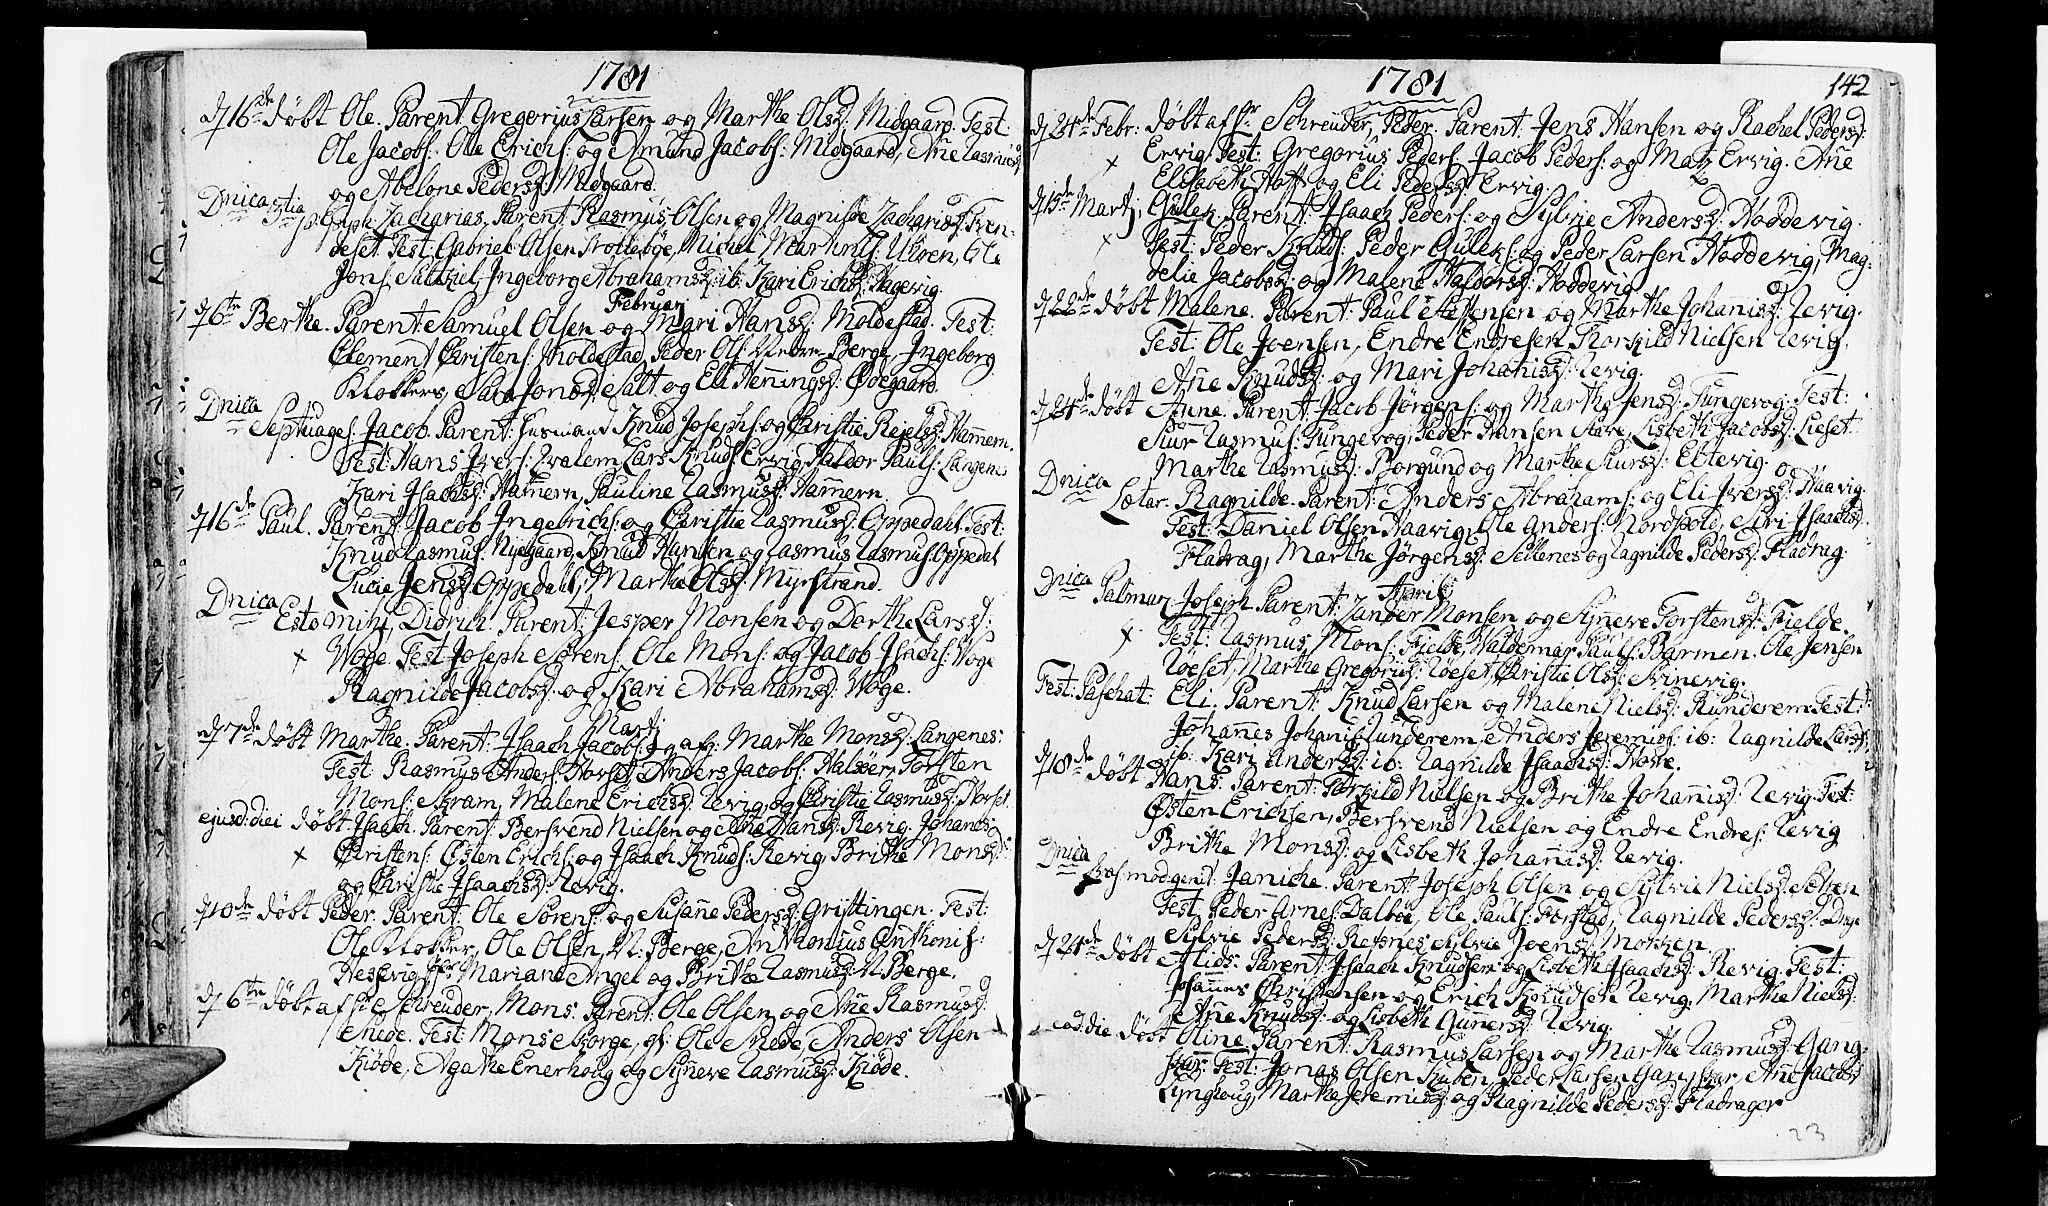 1781
d 16de døbt Ole. Parent Gregorius Larsen og Marthe Olsd: Midgaard. Test:
Ole Jacobs: Ole Erichs: og Amund Jacobs: Midgaard, Ane Rasmusd:
og Abelone Pedersd: Midgaard.
Dnica 3tia p. Epiph: Zacharias. Parent Rasmus Olsen og Magnilde Zachariæd: Tven-
deset. Test: Gabriel Olsen Trollebøe, Michel Ulven, Ole
Jons: Ingeborg Abrahamsd: ib: Kari Erichsd: Hagevig.
Februarj
d 6te Berthe. Parent Samuel Olsen og Mari Hansd: Moldestad. Test:
Clement Christens: Moldestad, Peder Ols: Berge, Ingeborg
Klokkers, Jonsd: Salt og Eli Henningsd: Ødegaard.
Dnica
Septuages. Jacob. Parent: husmand Knud Josephs: og Christie Hamern.
Test: Hans Ivers: Lars Knuds: Ervig, Haldor Pauls: Langenes
Kari Isachsd: Hamern, Pauline Rasmusd: Hamern.
d 16de Paul. Parent: Jacob Ingebrichs: og Christie Rasmusd: Oppedahl. Test:
Knud Rasmus: Nyegaard, Knud Hansen og Rasmus Rasmus: Oppedal
Lucie Jensd: Oppedahl, Marthe Olsd: Myrstrand.
Dnica
Esto mihi, Didrich. Parent: Jesper Monsen og Dorthe Larsd:
x Woge. Test Joseph Sørens: Ole Mons: og Jacob Isachs: Woge
Ragnilde Jacobsd: og Kari Abrahamsd: Woge.
Martj
d 7de døbt Marthe. Parent: Isaach Jacobs: og Marthe Monsd: Langenes:
Test Rasmus Anders: Horset, Anders Jacobs: Halsøer, Torsten
Mons: Skram, Malene Erichsd: Revig, og Christie Rasmusd: Horset
ejusd: diei døbt Isach. Parent: Bersvend Nielsen og Hansd: Revig. Johanes
x Christens: Østen Erichs: og Isaach Knuds: Revig, Brithe Monsd:
og Christie Isaachsd: Revig.
d 10de døbt Peder. Parent: Ole Sørens: og Susane Pedersd: Gristtingen. Test:
Ole Klokker, Ole Olsen, N: Berge, Anthonius Anthonis:
Hessevig, Mariane Angel og Brithe Rasmusd: N. Berge.
d 6te døbt af Schreuder, Mons. Parent: Ole Olsen og Ane Rasmusd:
Test: Mons Borge, Ole Anders Olsen
Kiøde, Agathe Enerhoug og Synneve Rasmusd: Kiøde.
1781
142
d 24de Febr: døbt af hr Schreuder, Peder. Parent: Jens Hansen og Rachel Pedersd:
x Ervig. Test: Gregorius Peders: Jacob Peders: og Matz Ervig. Ane
Elisabeth Hoff og Eli Pedersd: Ervig.
d 15de Martj, Gulek. Parent: Isaach Peders: og Sylvie Andersd: Hoddevig.
x Test: Peder Knuds: Peder Guleks: og Peder Larsen Hoddevig, Mag-
delie Jacobsd: og Malene Haldorsd: Hoddevig
d 22de døbt Malene. Parent: Paul Steffensen og Marthe Johanisd: Revig.
Test: Ole Joensen, Endre Endresen Torkild Nielsen Revig.
Ane Knudsd: og Mari Johanisd: Revig.
d 24de døbt Anne. Parent: Jacob Jørgens: og Marthe Jensd: Tungevog. Test:
Siur Rasmus: Tungevog, Peder Hansen Aare, Lisbeth Jacobsd: Lieset
Marthe Rasmusd: Borgund og Marthe Siursd: Eltevig.
Dnica
Lætar. Ragnilde. Parent: Anders Abrahams: og Eli Iversd: Haavig.
Test: Daniel Olsen Haavig, Ole Anders: Nordpold, Siri Isaachsd:
Fladrag, Marthe Jørgensd: Sellenes og Ragnilde Pedersd: Fladrag.
April
Dnica Palmar, Joseph. Parent: Zander Monsen og Synneve Torstensd: Fielde.
x Test: Rasmus Mons: Fielde, Waldemar Pauls: Barmen. Ole Jensen
Røeset, Marthe Gregorisd: Røeset, Christie Olsd: Svinevig.
Fest: Paschat: Eli. Parent: Knud Larsen og Malene Nielsd: Runderem. Test:
Johannes Johanis: Runderem, Anders Jeremis: ib: Ragnilde Larsd:
ib: Kari Andersd: ib: Ragnilde Isaachsd: Hove.
d 18de døbt Hans. Parent: Torkild Nielsen og Brithe Johanisd: Revig. Test:
Østen Erichsen, Bersvend Nielsen og Endre Endres: Revig
Brithe Monsd: og Lisbeth Johanisd: Revig.
Dnica
Qvasimodogenit: Janiche. Parent: Joseph Olsen og Sylvie Nielsd:
Test Peder Arnes: Dalbøe, Ole Pauls: Forstad, Ragnilde Pedersd: Drage
Sylvie Pedersd: Refsnes, Sylvie Joensd: Mokken
d 24de døbt Alida: Parent: Isaach Knudsen og Lisbeth Isaachsd: Revig. Test:
Johannes Christensen og Erich Knudsen Revig, Marthe Nielsd:
Ane Knudsd: og Lisbeth Gunersd: Revig.
eod: die døbt Oline. Parent: Rasmus Larsen og Marthe Rasmusd: Gang-
skar. Test: Jonas Olsen Kuben, Peder Larsen Gangskar, Ane Jacobsd
Lynghoug, Marthe Jeremisd: og Ragnilde Pedersd: Fladrager
23